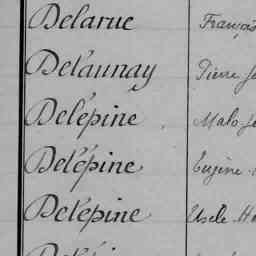 Delarue François
Delaunay Pierre
Delépine Malo
Delépine Eugène
Delépine